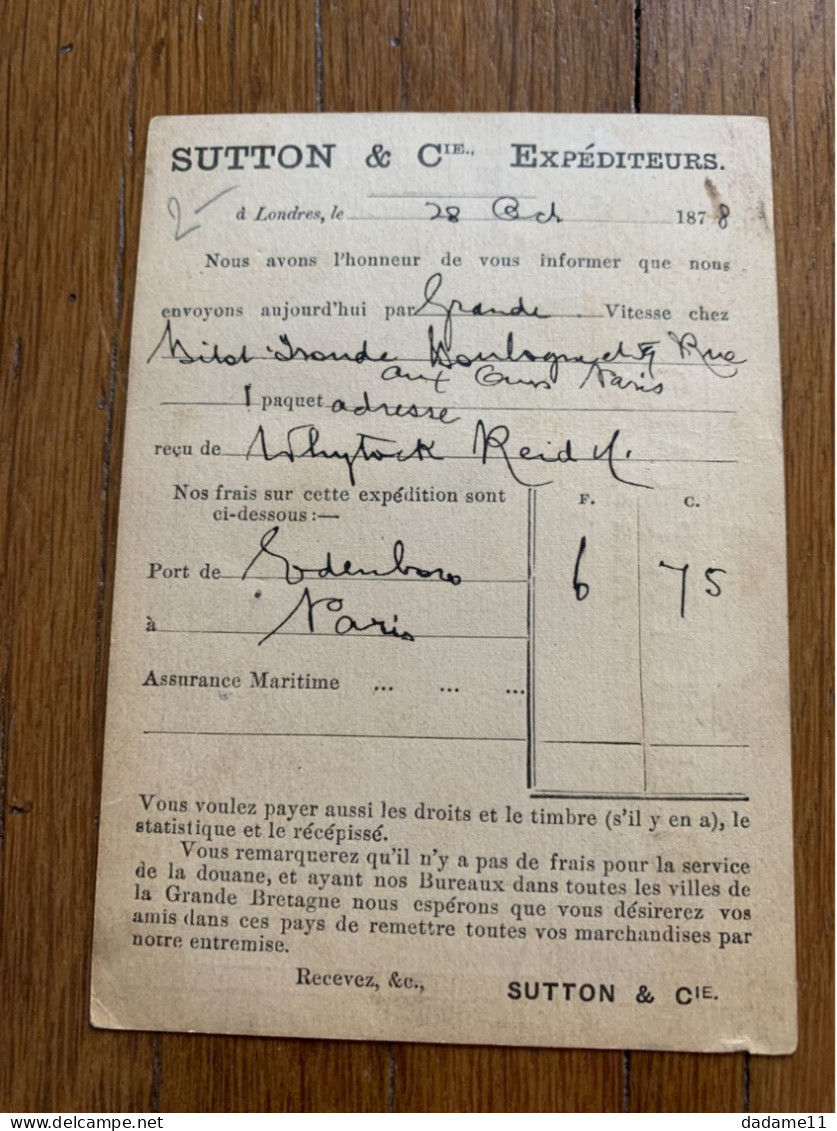 SUTTON & CIE., EXPÉDITEURS.
2-
à Londres, le 28 Oct 1878
Nous avons l'honneur de vous informer que nous
envoyons aujourd'hui par Grande Vitesse chez
Rue
aux Ours Paris
1 paquet adresse
reçu de Whytock Reid
Nos frais sur cette expédition sont F. C.
ci-dessous :—
Port de Edenboro 6 75
à Paris
Assurance Maritime ... ... ...
Vous voulez payer aussi les droits et le timbre (s'il y en a), le
statistique et le récépissé.
Vous remarquerez qu'il n'y a pas de frais pour la service
de la douane, et ayant nos Bureaux dans toutes les villes de
la Grande Bretagne nous espérons que vous désirerez vos
amis dans ces pays de remettre toutes vos marchandises par
notre entremise.
Recevez, &c.,
SUTTON & CIE.
dadame11